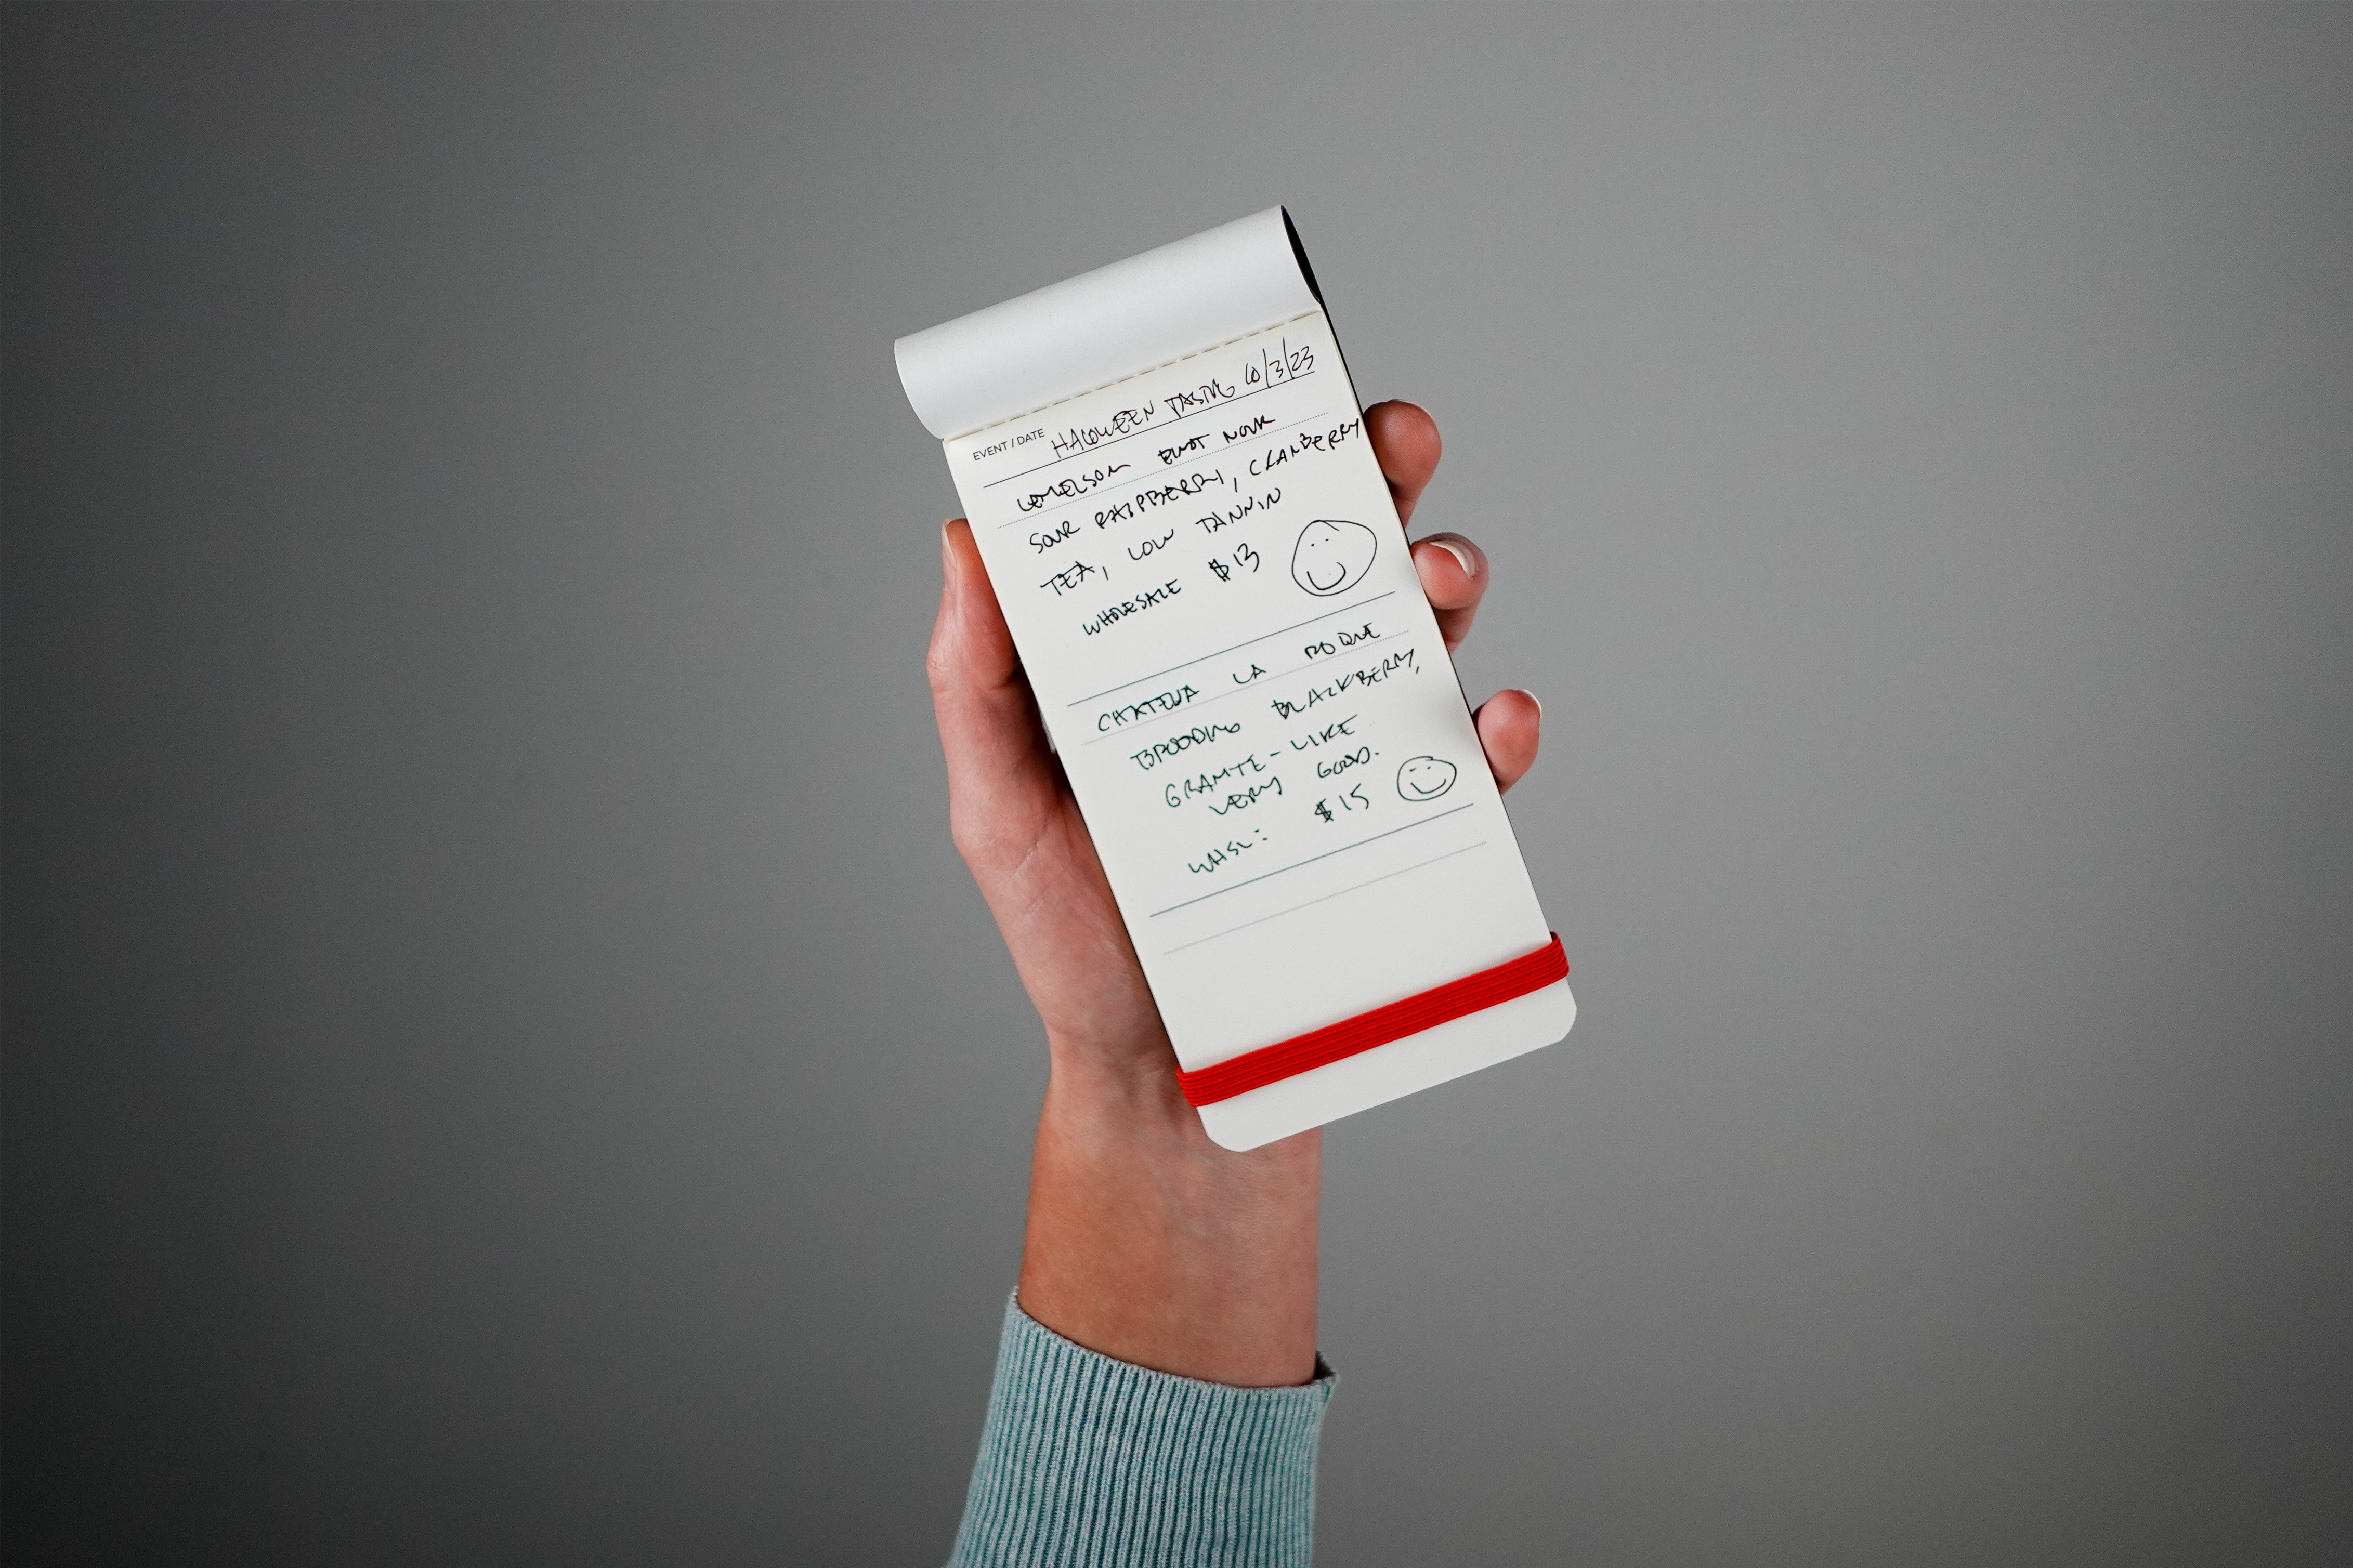 EVENT / DATE HALOWEEN TASTING 10/3/23
LEMELSON PINOT NOIR
SOUR RASPBERRY, CRANBERRY
TEA, LOW TANNIN
WHOLESALE $13
CHATEUA LA ROQUE
BROODING BLACKBERRY,
GRANITE-LIKE
VERY GOOD.
WHSL: $15